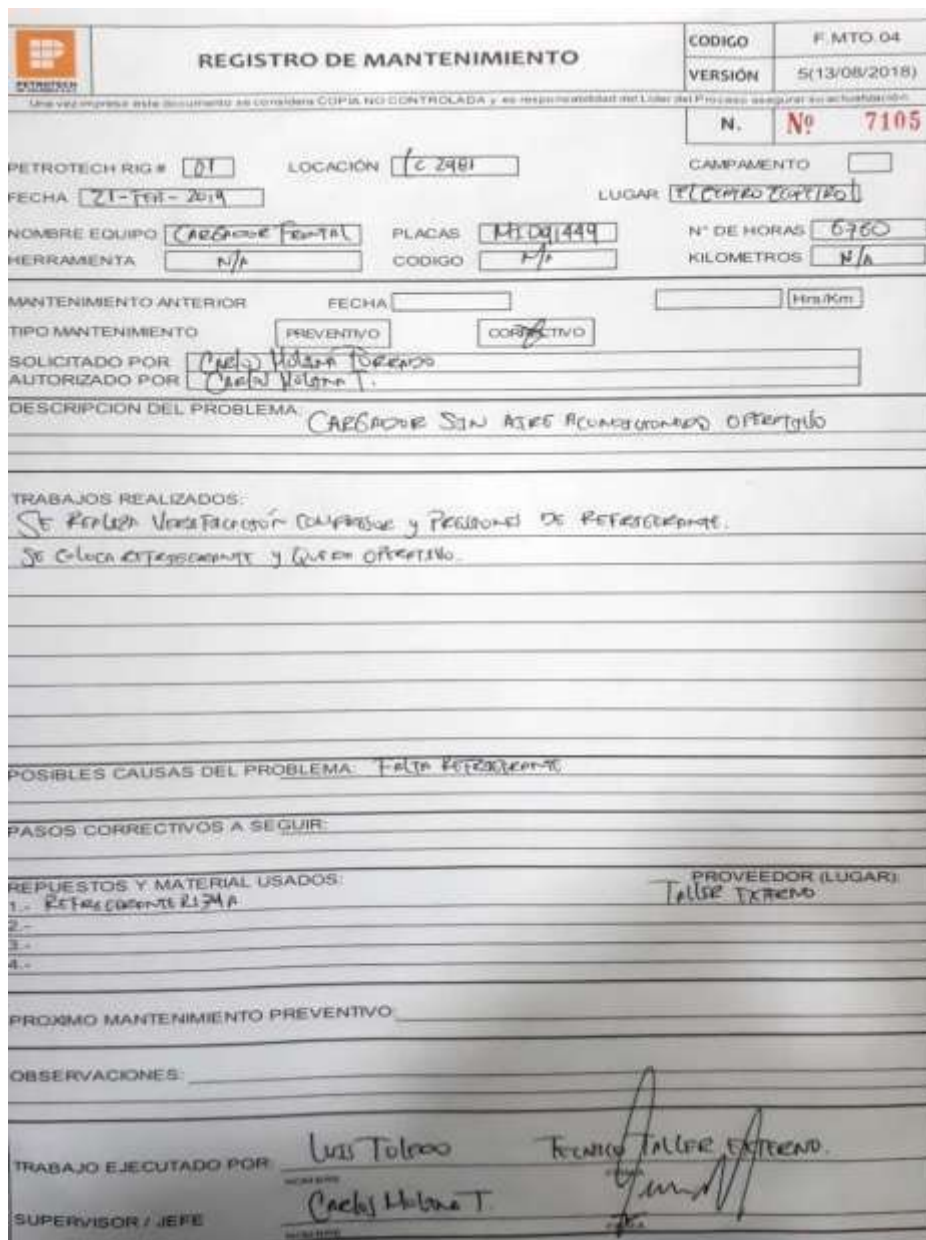 PETROTECH
REGISTRO DE MANTENIMIENTO
CODIGO F.MTO.04
VERSIÓN 5(13/08/2018)
Una vez impreso este documento se considera COPIA NO CONTROLADA y es responsabilidad del Lider del Proceso asegurar su actualización
N. Nº 7105
PETROTECH RIG # 01 LOCACIÓN CAMPAMENTO
FECHA 21-FEB-2019 LUGAR
NOMBRE EQUIPO CARGADOR FRONTAL PLACAS N° DE HORAS 6760
HERRAMIENTA N/A CODIGO N/A KILOMETROS N/A
MANTENIMIENTO ANTERIOR FECHA Hrs/Km
TIPO MANTENIMIENTO PREVENTIVO CORRECTIVO
SOLICITADO POR Carlos Molana
AUTORIZADO POR Carlos Molana T.
DESCRIPCION DEL PROBLEMA: CARGADOR SIN AIRE ACONDICIONADO OPERATIVO
TRABAJOS REALIZADOS:
SE REALIZA VERIFICACIÓN COMPRESOR y PRESIONES DE REFRIGERANTE.
SE COLOCA REFRIGERANTE y QUEDA OPERATIVO.
POSIBLES CAUSAS DEL PROBLEMA: FALTA REFRIGERANTE
PASOS CORRECTIVOS A SEGUIR:
REPUESTOS Y MATERIAL USADOS: PROVEEDOR (LUGAR):
1.- REFRIGERANTE R134A TALLER EXTERNO
2.-
3.-
4.-
PROXIMO MANTENIMIENTO PREVENTIVO:
OBSERVACIONES:
TRABAJO EJECUTADO POR: LUIS TOLEDO TECNICO TALLER EXTERNO.
NOMBRE FIRMA
SUPERVISOR / JEFE Carlos Molana T.
NOMBRE FIRMA